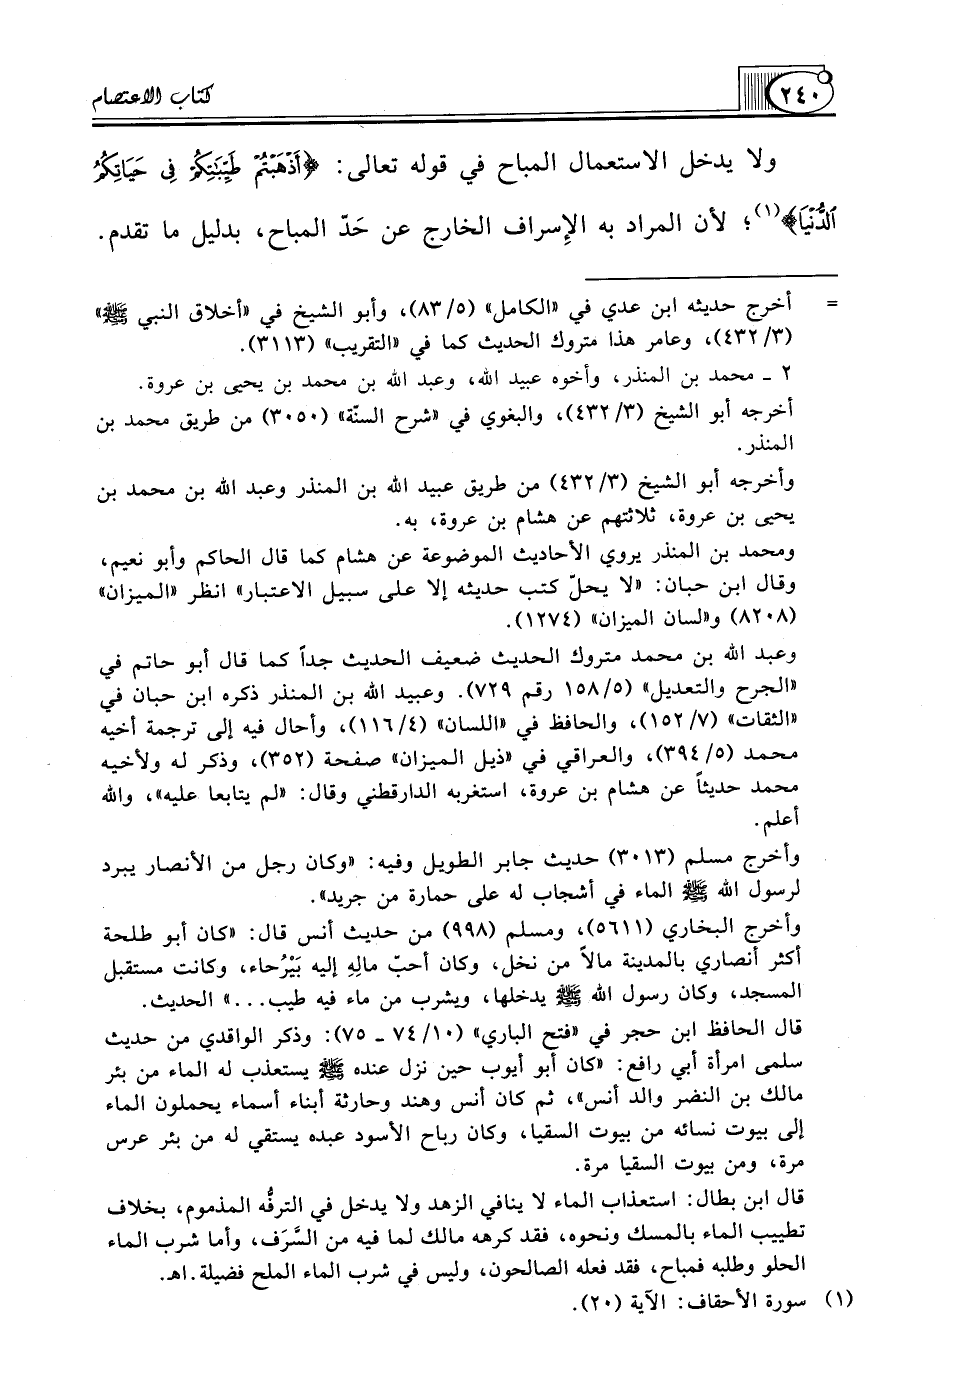 ٢٤٠
كتاب الاعتصام
ولا يدخل الاستعمال المباح في قوله تعالى: ﴿أَذْهَبْتُمْ طَيِّبَاتِكُمْ فِي حَيَاتِكُمُ
الدُّنْيَا﴾(١)؛ لأن المراد به الإسراف الخارج عن حَدّ المباح، بدليل ما تقدم.
= أخرج حديثه ابن عدي في «الكامل» (٨٣/٥)، وأبو الشيخ في «أخلاق النبي ﷺ»
(٤٣٢/٣)، وعامر هذا متروك الحديث كما في «التقريب» (٣١١٣).
٢ - محمد بن المنذر، وأخوه عبيد الله، وعبد الله بن محمد بن يحيى بن عروة.
أخرجه أبو الشيخ (٤٣٢/٣)، والبغوي في «شرح السنّة» (٣٠٥٠) من طريق محمد بن
المنذر.
وأخرجه أبو الشيخ (٤٣٢/٣) من طريق عبيد الله بن المنذر وعبد الله بن محمد بن
يحيى بن عروة، ثلاثتهم عن هشام بن عروة، به.
ومحمد بن المنذر يروي الأحاديث الموضوعة عن هشام كما قال الحاكم وأبو نعيم،
وقال ابن حبان: «لا يحلّ كتب حديثه إلا على سبيل الاعتبار» انظر «الميزان»
(٨٢٠٨) و«لسان الميزان» (١٢٧٤).
وعبد الله بن محمد متروك الحديث ضعيف الحديث جداً كما قال أبو حاتم في
«الجرح والتعديل» (١٥٨/٥ رقم ٧٢٩). وعبيد الله بن المنذر ذكره ابن حبان في
«الثقات» (١٥٢/٧)، والحافظ في «اللسان» (١١٦/٤)، وأحال فيه إلى ترجمة أخيه
محمد (٣٩٤/٥)، والعراقي في «ذيل الميزان» صفحة (٣٥٢)، وذكر له ولأخيه
محمد حديثاً عن هشام بن عروة، استغربه الدارقطني وقال: «لم يتابعا عليه»، والله
أعلم.
وأخرج مسلم (٣٠١٣) حديث جابر الطويل وفيه: «وكان رجل من الأنصار يبرد
لرسول الله ﷺ الماء في أشجاب له على حمارة من جريد».
وأخرج البخاري (٥٦١١)، ومسلم (٩٩٨) من حديث أنس قال: «كان أبو طلحة
أكثر أنصاري بالمدينة مالاً من نخل، وكان أحبّ مالِهِ إليه بَيْرُحاء، وكانت مستقبل
المسجد، وكان رسول الله ﷺ يدخلها، ويشرب من ماء فيه طيب...» الحديث.
قال الحافظ ابن حجر في «فتح الباري» (٧٤/١٠ - ٧٥): وذكر الواقدي من حديث
سلمى امرأة أبي رافع: «كان أبو أيوب حين نزل عنده ﷺ يستعذب له الماء من بئر
مالك بن النضر والد أنس»، ثم كان أنس وهند وحارثة أبناء أسماء يحملون الماء
إلى بيوت نسائه من بيوت السقيا، وكان رباح الأسود عبده يستقي له من بئر عرس
مرة، ومن بيوت السقيا مرة.
قال ابن بطال: استعذاب الماء لا ينافي الزهد ولا يدخل في الترفُّه المذموم، بخلاف
تطييب الماء بالمسك ونحوه، فقد كرهه مالك لما فيه من السَّرَف، وأما شرب الماء
الحلو وطلبه فمباح، فقد فعله الصالحون، وليس في شرب الماء الملح فضيلة.اهـ.
(١) سورة الأحقاف: الآية (٢٠).